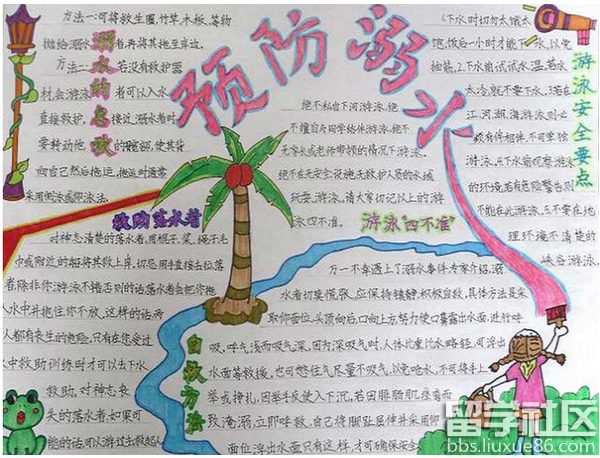 预防溺水
方法一:可将救生圈、竹草、木板、等物
抛给溺水者,再将其拖至岸边。
方法二:若没有救护器
材,会游泳者可以入水
直接救护,接近溺水者时
要转动他的髋部,使其背
向自己然后拖运,拖运时通常
采用侧泳或仰泳法。
溺水的急救
绝不私自下河游泳,绝
不擅自与同学结伴游泳,绝不
无家长或老师带领的情况下游泳,
绝不在无安全设施无救护人员的水域
玩耍、游泳,请大家切记以上的游
泳四不准。
游泳“四不准”
1.下水时切勿太饿太
饱,饭后一小时才能下水,以免
抽筋。2.下水前试试水温,若水
太冷,就不要下水,3.若在
江、河、湖、海游泳则必
须有伴相伴,不可单独
游泳。4.下水前观察游泳
的环境,若有危险警告则
不能在此游泳。5.不要在地
理环境不清楚的
峡谷游泳。
游泳安全要点
救助落水者
对神志清楚的落水者,用棍子、桨、绳子毛
巾或附近的船将其救上岸,切忌用手直接去拉落
者,除非你游泳不错否则的话落水者会把你拖
入水中并抱住你不放,这样的话两
人都有丧生的危险,只有在您受过
水中救助训练时才可以去下水
救助,对神志丧
失的落水者,如果可
能的话可以游过去救起人
自救方法
万一不幸遇上了溺水事件,专家介绍,溺
水者切莫慌张,应保持镇静,积极自救,具体方法是采
取仰面位,头顶向后,口向上方努力使口鼻露出水面,进行呼
吸,呼气浅而吸气深,因为深吸气时,人体比重比水略轻,可浮出
水面等救援,也可憋住气尽量不吸气,以免呛水,不可将手上
举或挣扎,因举手反使人下沉,若因腓肠肌痉挛而
致淹溺,立即呼救,自己将脚趾屈伸并采用仰
面位,浮出水面只有这样,才可确保安全
留学社区
bbs.liuxue86.com